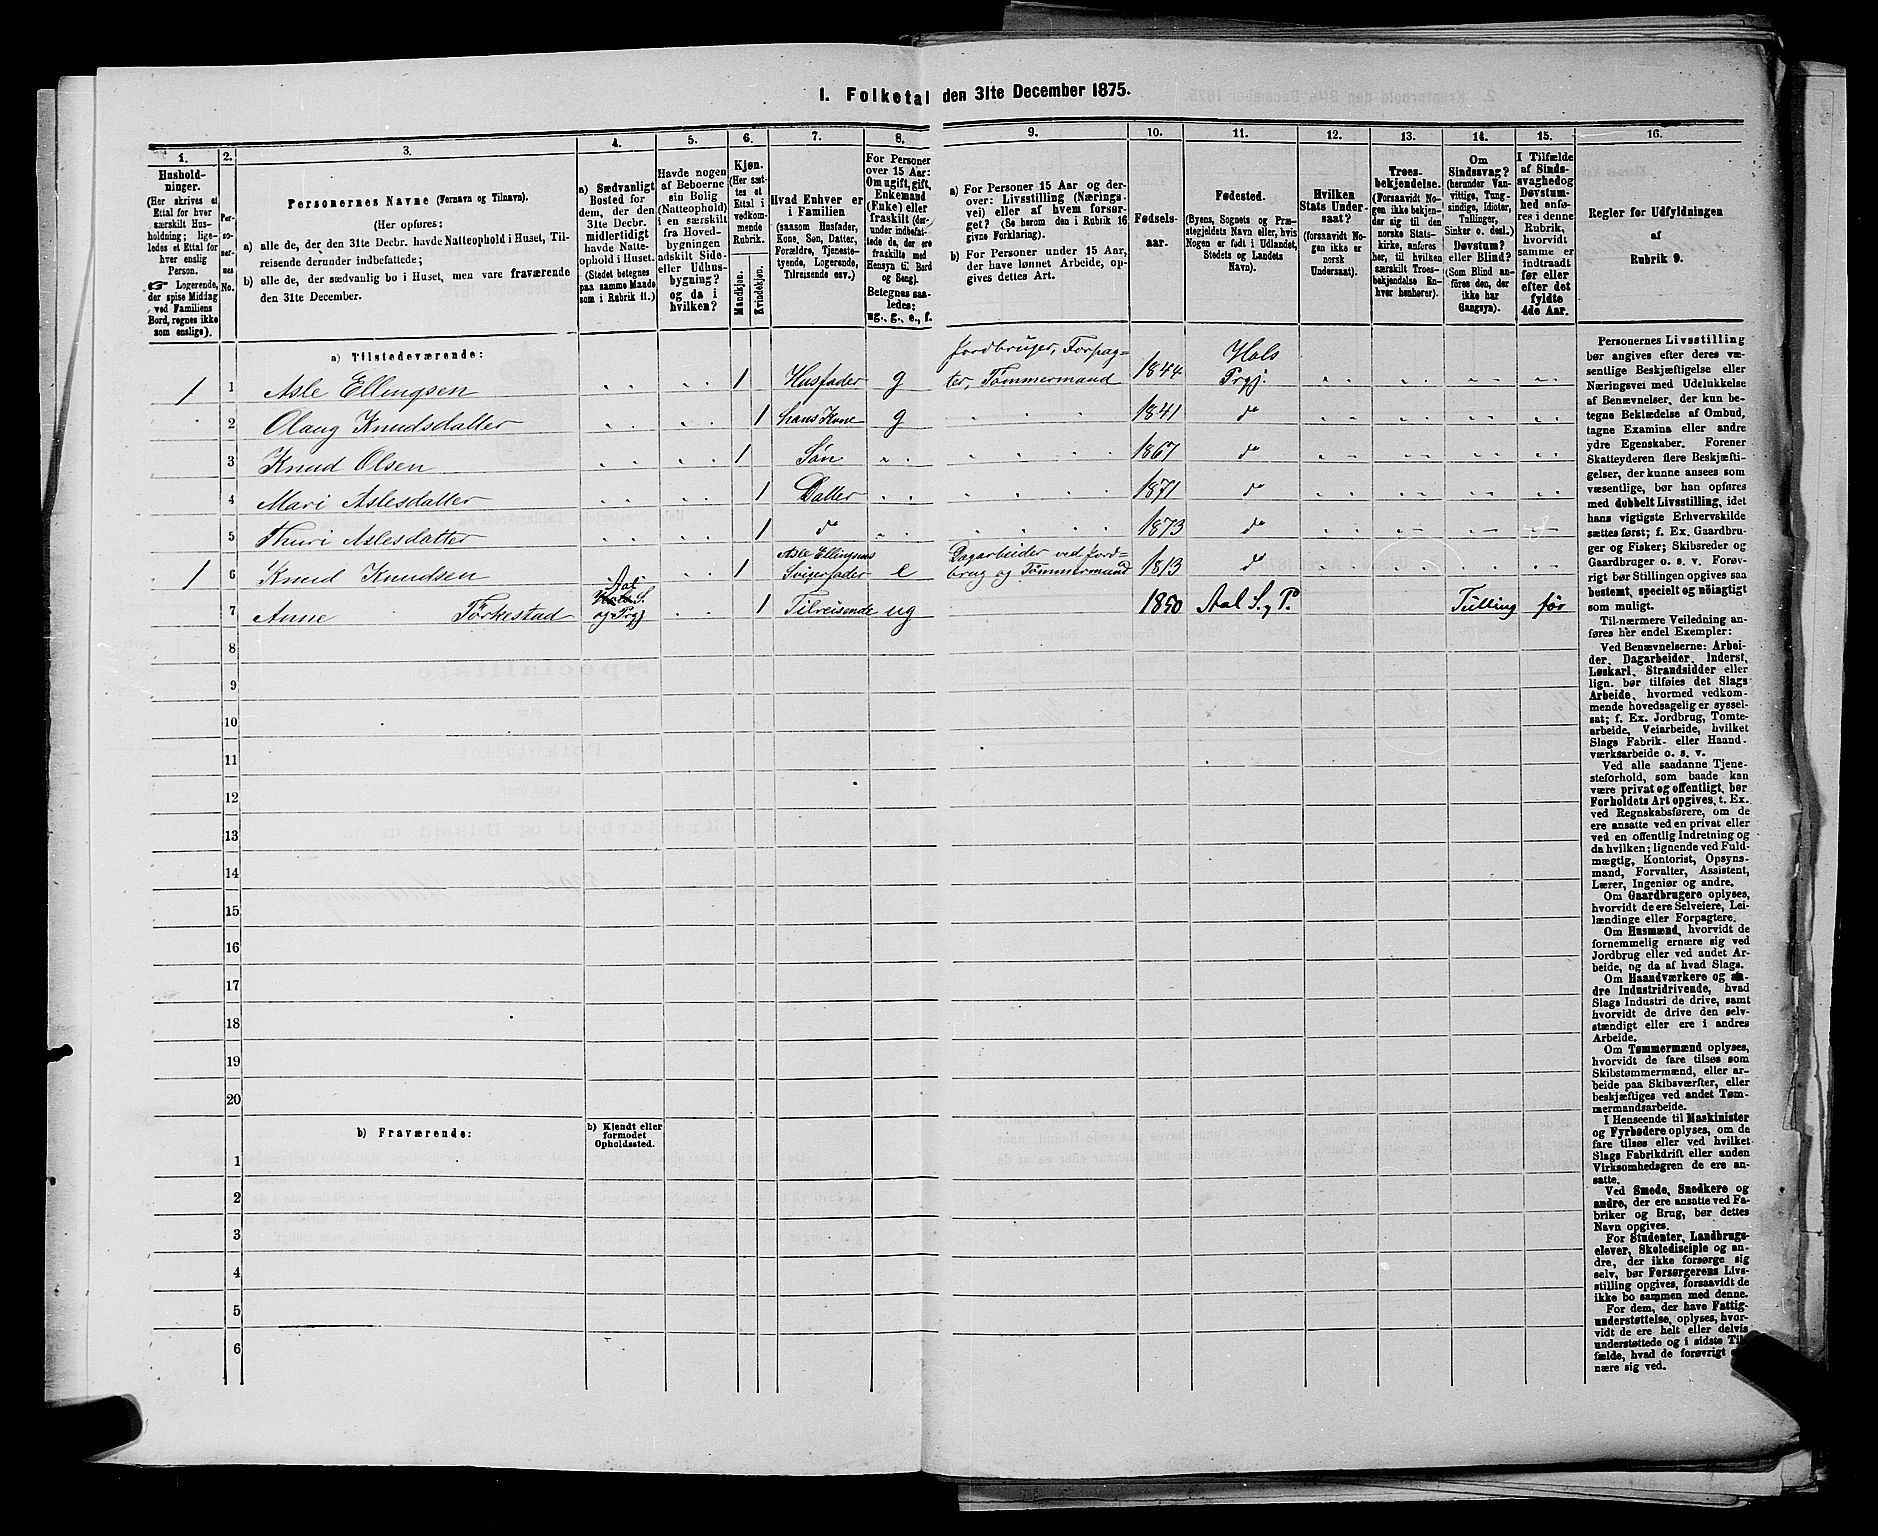 1. Folketal den 31te December 1875.
1.
2.
3.
4.
5.
6.
7.
8.
9.
10.
11.
12.
13.
14.
15.
16.
Hushold-
ninger.
(Her skrives et
Ettal for hver
særskilt Hus-
holdning; lige-
ledes et Ettal for
hver enslig
Person.
☛ Logerende,
der spise Middag
ved Familiens
Bord, regnes ikke
som enslige).
Per-
so-
ner-
nes
No.
Personernes Navne (Fornavn og Tilnavn).
(Her opføres:
a) alle de, der den 31te Decbr. havde Natteophold i Huset, Til-
reisende derunder indbefattede;
b) alle de, der sædvanlig bo i Huset, men vare fraværende
den 31te December.
a) Sædvanligt
Bosted for
dem, der den
31te Decbr.
midlertidigt
havde Natte-
ophold i Huset.
(Stedet betegnes
paa samme Maade
som i Rubrik 11.)
Havde nogen
af Beboerne
sin Bolig
(Natteophold)
i en særskilt
fra Hoved-
bygningen
adskilt Side-
eller Udhus-
bygning?
og da i
hvilken?
Kjøn.
(Her sæt-
tes et
Ettal i
vedkom-
mende
Rubrik.
Mandkjøn.
Kvindekjøn.
Hvad Enhver er
i Familien
(saasom Husfader,
Kone, Søn, Datter,
Forældre, Tjeneste-
tyende, Logerende,
Tilreisende osv.)
For Personer
over 15 Aar:
Om ugift, gift,
Enkemand
(Enke) eller
fraskilt (der-
under indbefat-
tede de, der ere
fraskilte med
Hensyn til Bord
og Seng).
Betegnes saa-
ledes:
ug., g., e., f.
a) For Personer 15 Aar og der-
over: Livsstilling (Nærings-
vei) eller af hvem forsør-
get? (Se herom den i Rubrik 16
givne Forklaring).
b) For Personer under 15 Aar,
der have lønnet Arbeide, op-
gives dettes Art.
Fødsels-
aar.
Fødested.
(Byens, Sognets og Præ-
stegjeldets Navn eller, hvis
Nogen er født i Udlandet,
Stedets og Landets
Navn).
Hvilken
Stats Under-
saat?
(forsaavidt No-
gen ikke er
norsk
Undersaat).
Troes-
bekjendelse.
(Forsaavidt No-
gen ikke bekjen-
der sig til den
norske Stats-
kirke, anføres
her, til hvilken
særskilt Troes-
bekjendelse En-
hver henhører).
Om
Sindssvag?
(herunder Van-
vittige, Tung-
sindige, Idioter,
Tullinger,
Sinker o. desl.)
Døvstum?
eller Blind?
(Som Blind an-
føres den, der
ikke har
Gangsyn).
I Tilfælde
af Sinds-
svaghed og
Døvstum-
hed anføres
i denne
Rubrik,
hvorvidt
samme er
indtraadt
før eller
efter det
fyldte
4de Aar.
Regler for Udfyldningen
af
Rubrik 9.
a) Tilstedeværende:
1 1 Asle Ellingsen 1 Husfader g Jordbruger, Forpag-
ter, Tømmermand 1844 Hols
Prgj.
2 Olaug Knudsdatter 1 hans Kone g 1841 do
3 Knud Olsen 1 Søn 1867 do
4 Mari Aslesdatter 1 Datter 1871 do
5 Thuri Aslesdatter 1 do 1873 do
1 6 Knud Knudsen 1 Asle Ellingsens
Svigerfader e Dagarbeider ved Jord-
brug og Tømmermand 1813 do
7 Anne Tørkestad Aal
Hols S.
og Prgj 1 Tilreisende ug 1850 Aal S. og P. Tulling før
8
9
10
11
12
13
14
15
16
17
18
19
20
b) Fraværende:
b) Kjendt eller
formodet
Opholdssted.
1
2
3
4
5
6
Personernes Livsstilling
bør angives efter deres væ-
sentlige Beskjæftigelse eller
Næringsvei med Udelukkelse
af Benævnelser, der kun be-
tegne Beklædelse af Ombud,
tagne Examina eller andre
ydre Egenskaber. Forener
Skatteyderen flere Beskjæfti-
gelser, der kunne ansees som
væsentlige, bør han opføres
med dobbelt Livsstilling, idet
hans vigtigste Erhvervskilde
sættes først; f. Ex. Gaardbru-
ger og Fisker; Skibsreder og
Gaardbruger o. s. v. Forøv-
rigt bør Stillingen opgives saa
bestemt, specielt og nøiagtigt
som muligt.
Til nærmere Veiledning an-
føres her endel Exempler:
Ved Benævnelserne: Arbei-
der, Dagarbeider, Inderst,
Løskarl, Strandsidder eller
lign. bør tilføies det Slags
Arbeide, hvormed vedkom-
mende hovedsagelig er syssel-
sat; f. Ex. Jordbrug, Tomte-
arbeide, Veiarbeide, hvilket
Slags Fabrik- eller Haand-
værksarbeide o. s. v.
Ved alle saadanne Tjene-
steforhold, som baade kan
være privat og offentligt, bør
Forholdets Art opgives, t. Ex.
ved Regnskabsførere, om de
ere ansatte ved en privat eller
ved en offentlig Indretning og
da hvilken; lignende ved Fuld-
mægtig, Kontorist, Opsyns-
mand, Forvalter, Assistent,
Lærer, Ingeniør og andre.
Om Gaardbrugere oplyses,
hvorvidt de ere Selveiere, Lei-
lændinge eller Forpagtere.
Om Husmænd, hvorvidt de
fornemmelig ernære sig ved
Jordbrug eller ved andet Ar-
beide, og da af hvad Slags.
Om Haandværkere og an-
dre Industridrivende, hvad
Slags Industri de drive, samt
hvorvidt de drive den selv-
stændigt eller ere i andres
Arbeide.
Om Tømmermænd oplyses,
hvorvidt de fare tilsøs som
Skibstømmermænd, eller ar-
beide paa Skibsværfter, eller
beskjæftiges ved andet Tøm-
mermandsarbeide.
I Henseende til Maskinister
og Fyrbødere oplyses, om de
fare tilsøs eller ved hvilket
Slags Fabrikdrift eller anden
Virksomhedsgren de ere an-
satte.
Ved Smede, Snedkere og
andre, der ere ansatte ved Fa-
briker og Brug, bør dettes
Navn opgives.
For Studenter, Landbrugs-
elever, Skoledisciple og an-
dre, der ikke forsørge sig
selv, bør Forsørgerens Livs-
stilling opgives, forsaavidt de
ikke bo sammen med denne.
For dem, der have Fattig-
understøttelse, oplyses, hvor-
vidt de ere helt eller delvis
understøttede og i sidste Til-
fælde, hvad de forøvrigt er-
nære sig ved.